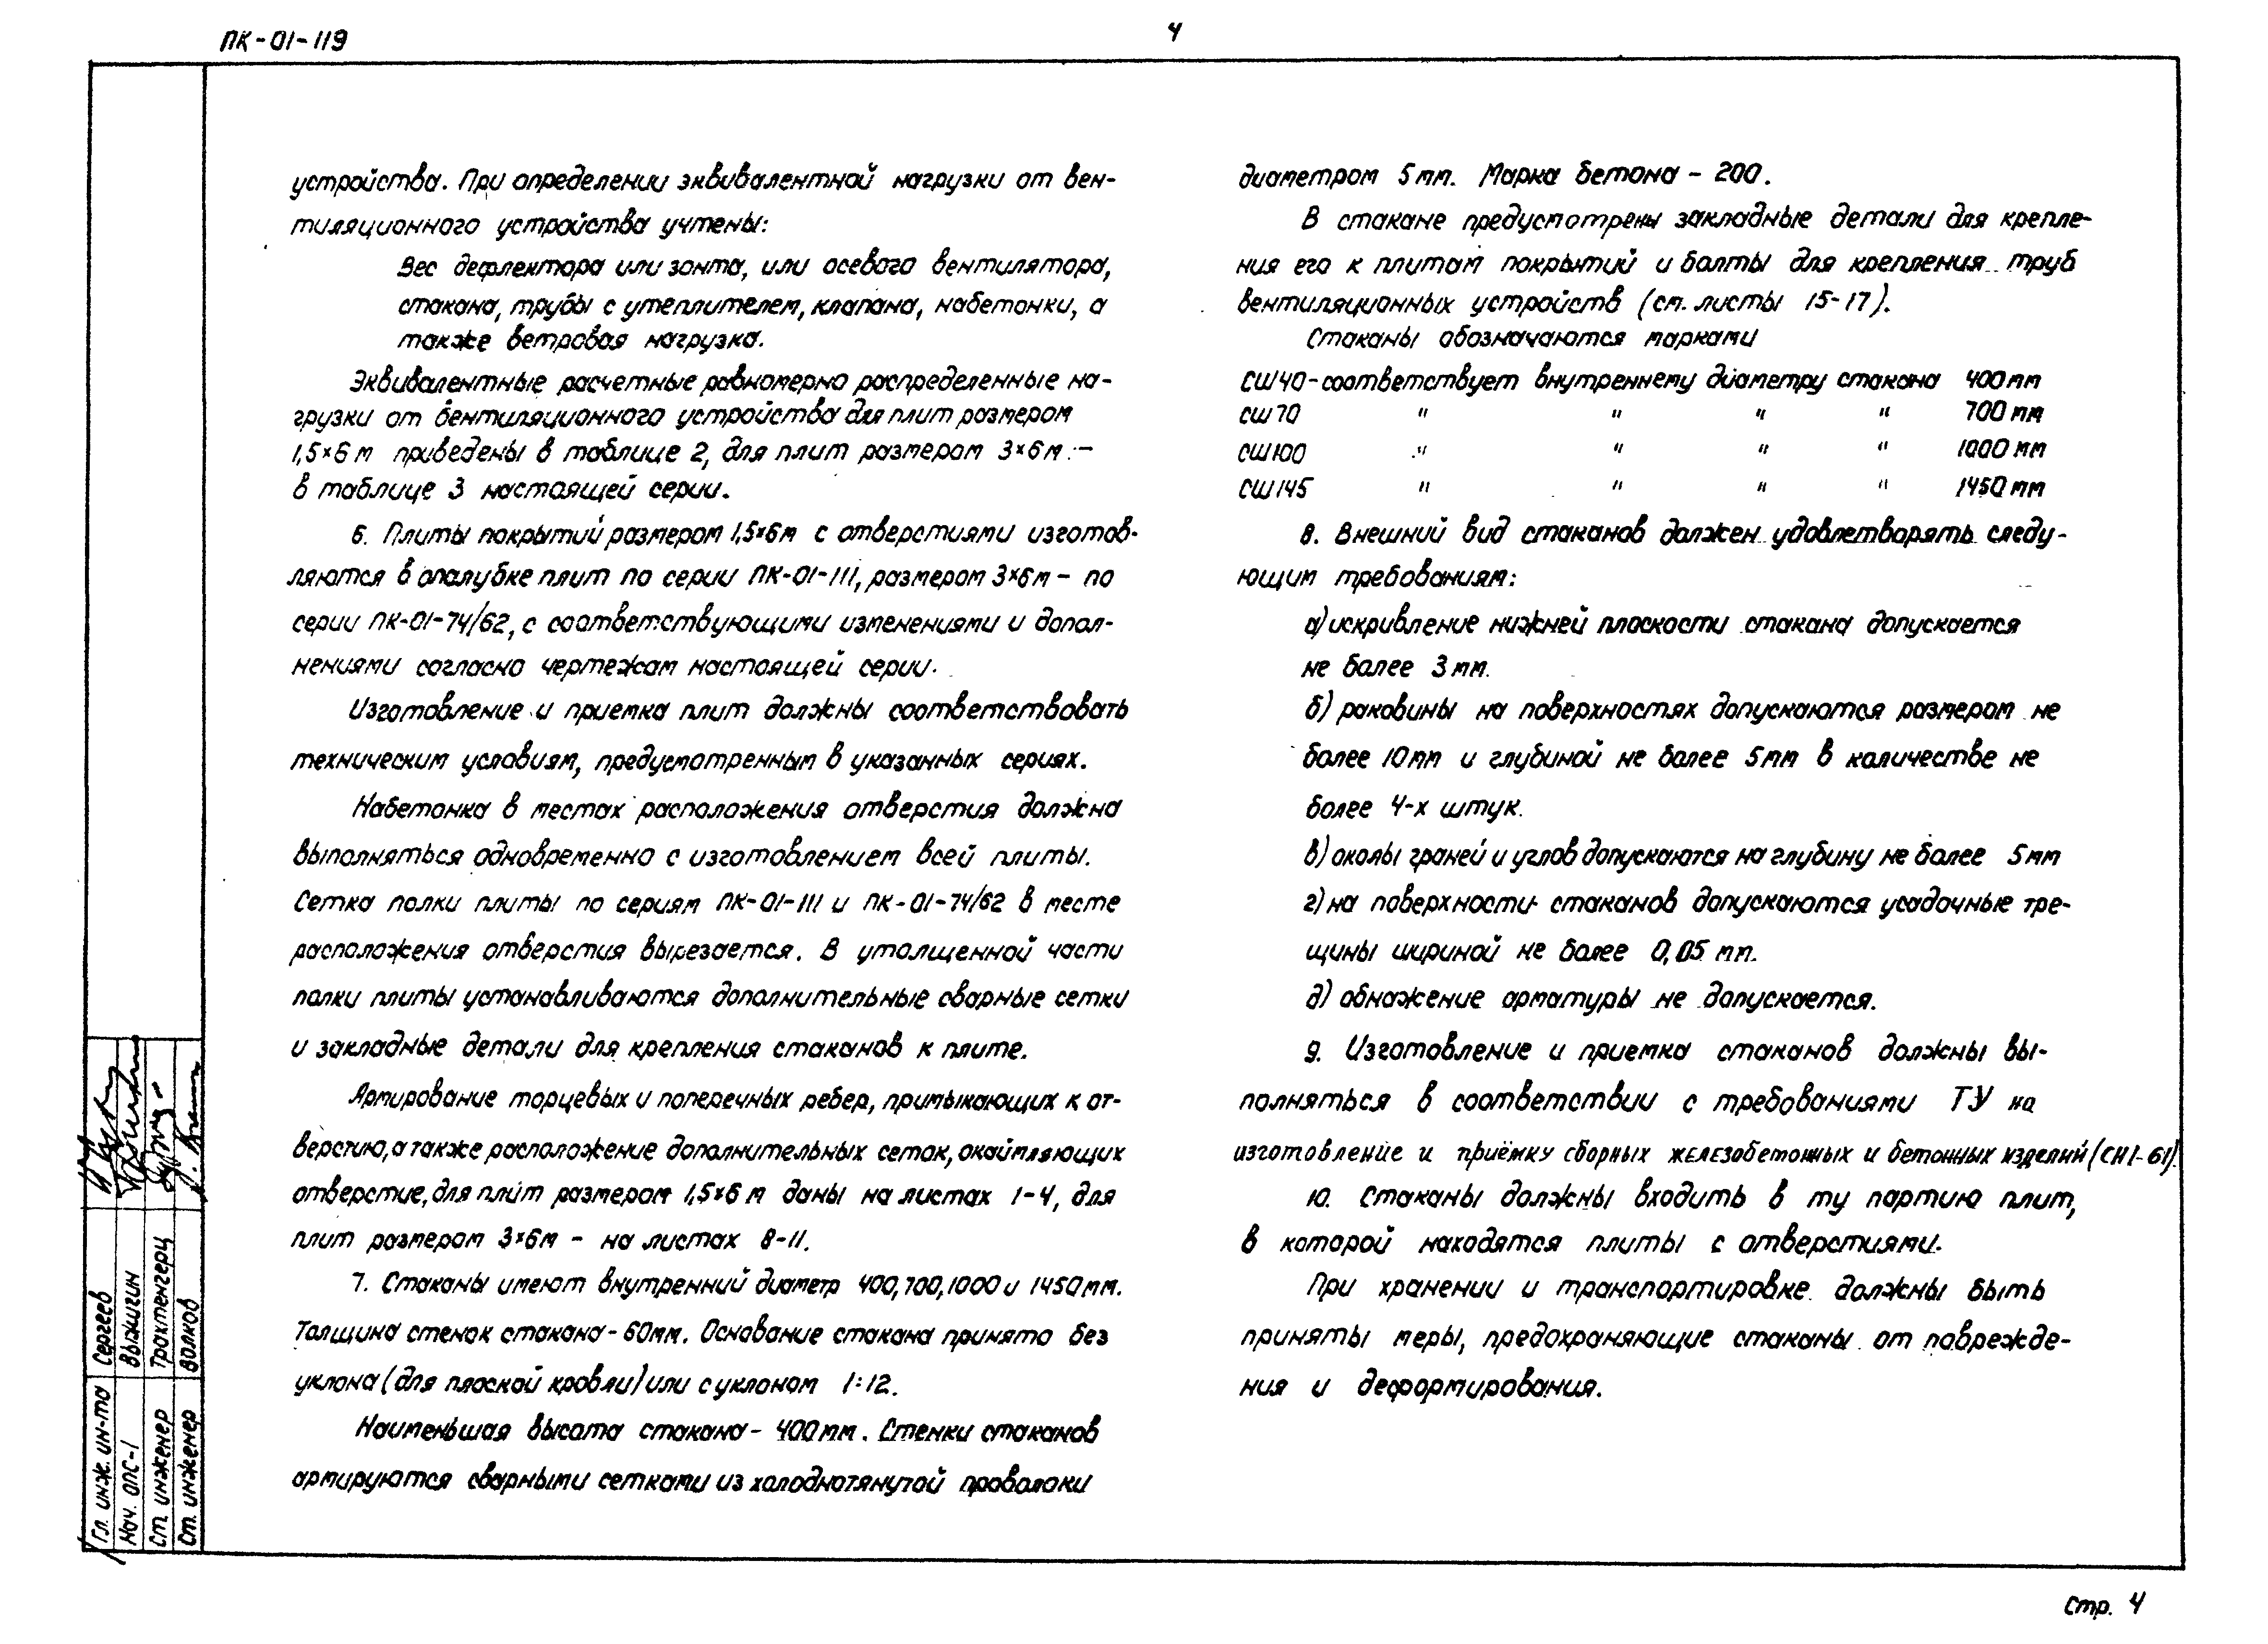 ПК-01-119
4
устройства. При определении эквивалентной нагрузки от вен-
тиляционного устройства учтены:
Вес дефлектора или зонта, или осевого вентилятора,
стакана, трубы с утеплителем, клапана, набетонки, а
также ветровая нагрузка.
Эквивалентные расчетные равномерно распределенные на-
грузки от вентиляционного устройства для плит размером
1,5×6 м приведены в таблице 2, для плит размером 3×6 м -
в таблице 3 настоящей серии.
6. Плиты покрытий размером 1,5×6м с отверстиями изготов-
ляются в опалубке плит по серии ПК-01-111, размером 3×6м - по
серии ПК-01-74/62, с соответствующими изменениями и допол-
нениями согласно чертежам настоящей серии.
Изготовление и приемка плит должны соответствовать
техническим условиям, предусмотренным в указанных сериях.
Набетонка в местах расположения отверстия должна
выполняться одновременно с изготовлением всей плиты.
Сетка полки плиты по сериям ПК-01-111 и ПК-01-74/62 в месте
расположения отверстия вырезается. В утолщенной части
полки плиты устанавливаются дополнительные сварные сетки
и закладные детали для крепления стаканов к плите.
Армирование торцевых и поперечных ребер, примыкающих к от-
верстию, а также расположение дополнительных сеток, окаймляющих
отверстие, для плит размером 1,5×6 м даны на листах 1-4, для
плит размером 3×6м - на листах 8-11.
7. Стаканы имеют внутренний диаметр 400, 700, 1000 и 1450мм.
Толщина стенок стакана - 60мм. Основание стакана принято без
уклона (для плоской кровли) или с уклоном 1:12.
Наименьшая высота стакана - 400 мм. Стенки стаканов
армируются сварными сетками из холоднотянутой проволоки
диаметром 5 мм. Марка бетона - 200.
В стакане предусмотрены закладные детали для крепле-
ния его к плитам покрытий и болты для крепления труб
вентиляционных устройств (см. листы 15-17).
Стаканы обозначаются марками
СШ40 - соответствует внутреннему диаметру стакана 400мм
СШ70 " " " " 700 мм
СШ100 " " " " 1000 мм
СШ145 " " " " 1450 мм
8. Внешний вид стаканов должен удовлетворять следу-
ющим требованиям:
а) искривление нижней плоскости стакана допускается
не более 3 мм.
б) раковины на поверхностях допускаются размером не
более 10 мм и глубиной не более 5 мм в количестве не
более 4-х штук.
в) околы граней и углов допускаются на глубину не более 5 мм
г) на поверхности стаканов допускаются усадочные тре-
щины шириной не более 0,05 мм.
д) обнажение арматуры не допускается.
9. Изготовление и приемка стаканов должны вы-
полняться в соответствии с требованиями ТУ на
изготовление и приёмку сборных железобетонных и бетонных изделий (СН 1-61).
10. Стаканы должны входить в ту партию плит,
в которой находятся плиты с отверстиями.
При хранении и транспортировке должны быть
приняты меры, предохраняющие стаканы от поврежде-
ния и деформирования.
Гл. инж. ин-та Сергеев
Нач. ОПС-1 Выжигин
Ст. инженер Трахтенгерц
Ст. инженер Волков
Стр. 4